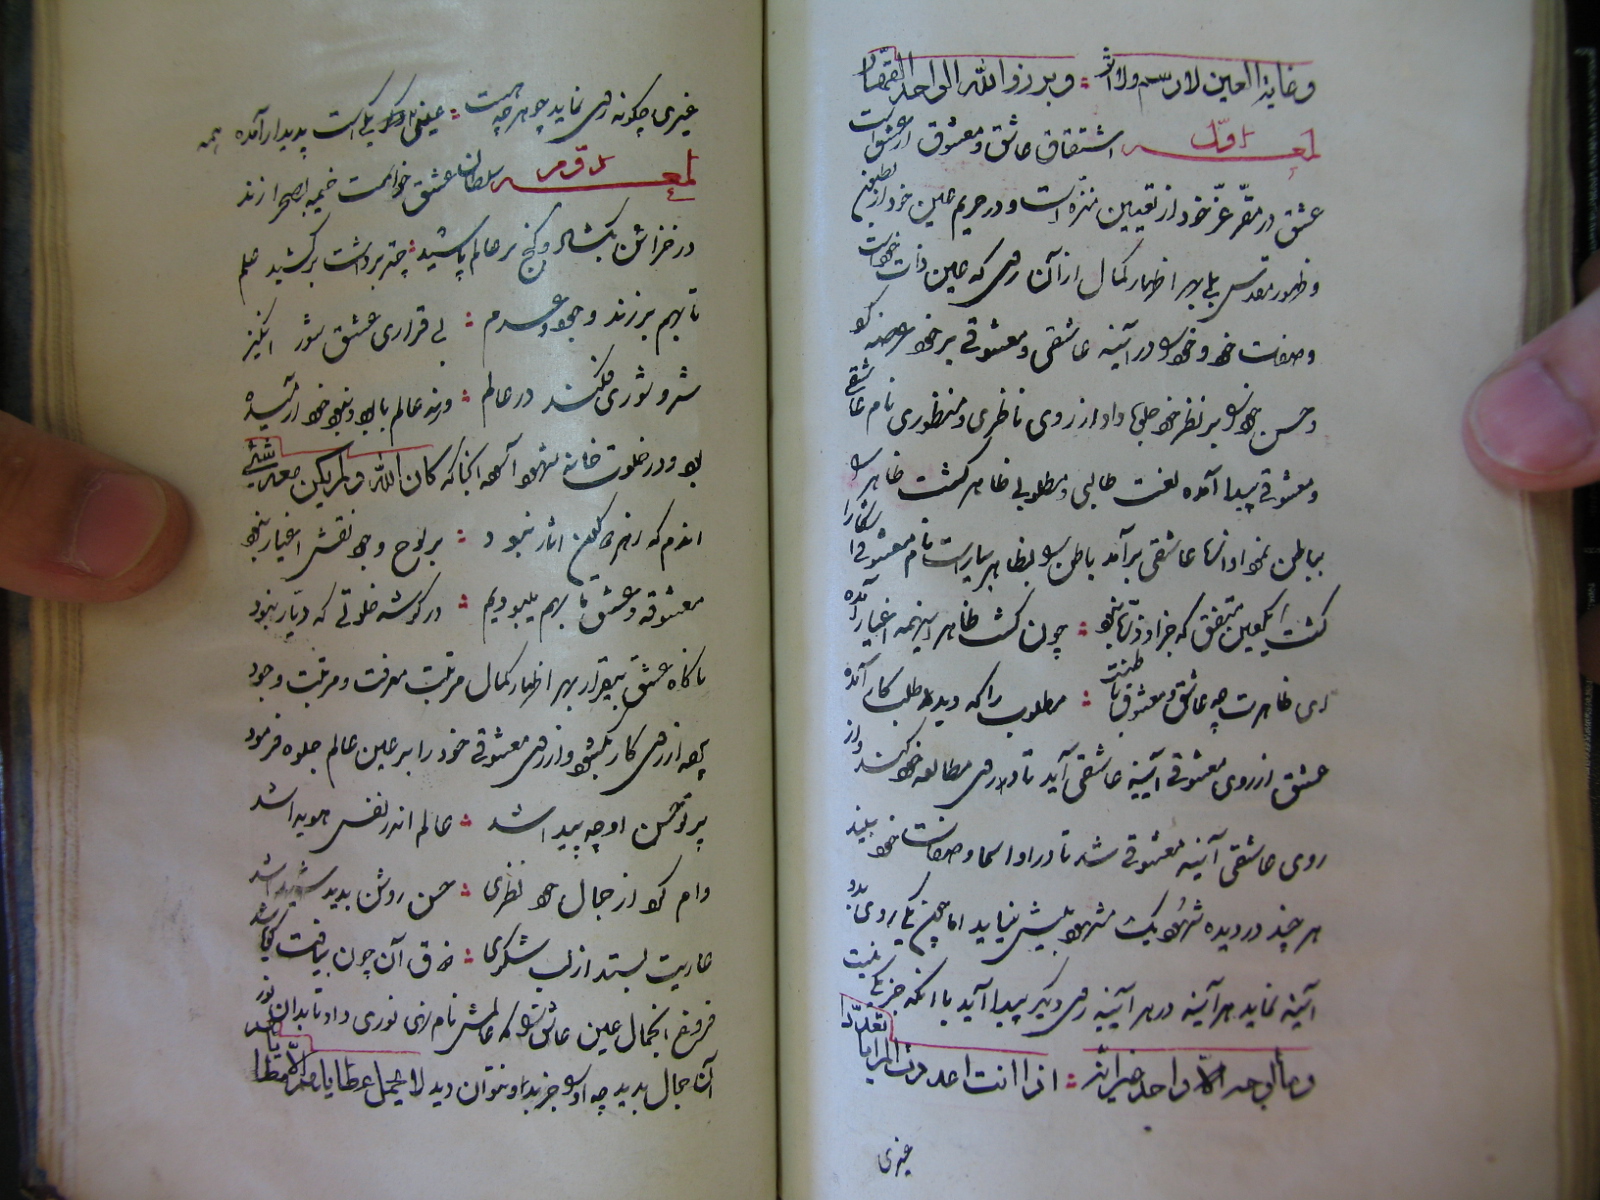 وغایة العین لا رسم ولا اثر : وبرزوا لله الواحد القهار
لمعه اوّل اشتقاق عاشق و معشوق از عشق است
عشق در مقرّ عزّ خود از تعیین منزه است و در حریم عین خود از بطون
و ظهور مقدس بلی بهر اظهار کمال از آن روی که عین ذات خود است
و صفات خود و خود را در آینه عاشقی و معشوقی بر خود عرضه کرد
و حسن خود را بر نظر خود جلوه داد از روی ناظری و منظوری نام عاشقی
و معشوقی پیدا آمده نعت طالبی و مطلوبی ظاهر کشت ظاهر را
بباطن نمود آوازه عاشقی برآمد باطن را بظاهر بیاراست نام معشوقی آشکارا
کشت یکعین متفق که جز او ذرّه نبود : چون کشت ظاهر اینهمه اغیار آمده
ای ظاهرت چه عاشق و معشوق باطنت : مطلوب را که دید طلب کار آمده
عشق از روی معشوقی آیینه عاشقی آید تا در وی مطالعه خود کند و از
روی عاشقی آینه معشوقی شد تا در او اسما و صفات خود بیند
هر چند در دیده شهود یک مشهود بیش نیاید اما چون یک روی بدو
آینه نماید هرآینه در هر آیینه روی دیگر پیدا آید با انکه جز یکی نیست
وما الوجه الا واحد غیر انّه : اذا انت اعددت المرایا تعدّدا
غیری
غیری چگونه روی نماید چو هر چه هست : عین دکر یکی است پدیدار آمده همه
لمعه دوّم سلطان عشق خواست خیمه بصحرا زند
در خزائن بکشاد و کنج بر عالم پاشید : چتر برداشت برکشید علم
تا بهم برزند وجود و عدم : بی قراری عشق شور انکیز
شر و شوری فکند در عالم : ورنه عالم با بود و نبود خود آرمیده
بود و در خلوت خانه شهود آسوده انجا که کان الله ولم یکن معه شیئ
اندم که ز هر دو کون اثار نبود : بر لوح وجود نقش اغیار نبود
معشوقه و عشق ما بهم میبودیم : در کوشه خلوتی که دیّار نبود
ناکاه عشق بیقرار بهر اظهار کمال مرتبت معرفت و مرتبت وجود
پرده از روی کار بکشود و از روی معشوقی خود را بر عین عالم جلوه فرمود
پرتو حسن او چو پیدا شد : عالم اندر نفس هویدا شد
وام کرد از جمال خود نظری : حسن رویش بدید شیدا شد
عاریت بستد از لبش شکری : ذوق آن چون بیافت گویا شد
فروغ انجمال عین عاشق را که عالمش نام نهی نوری داد تا بدان نور
آن جمال بدید چه او را جز بدو نتوان دید لا یحمل عطایاهم الا مطایاهم